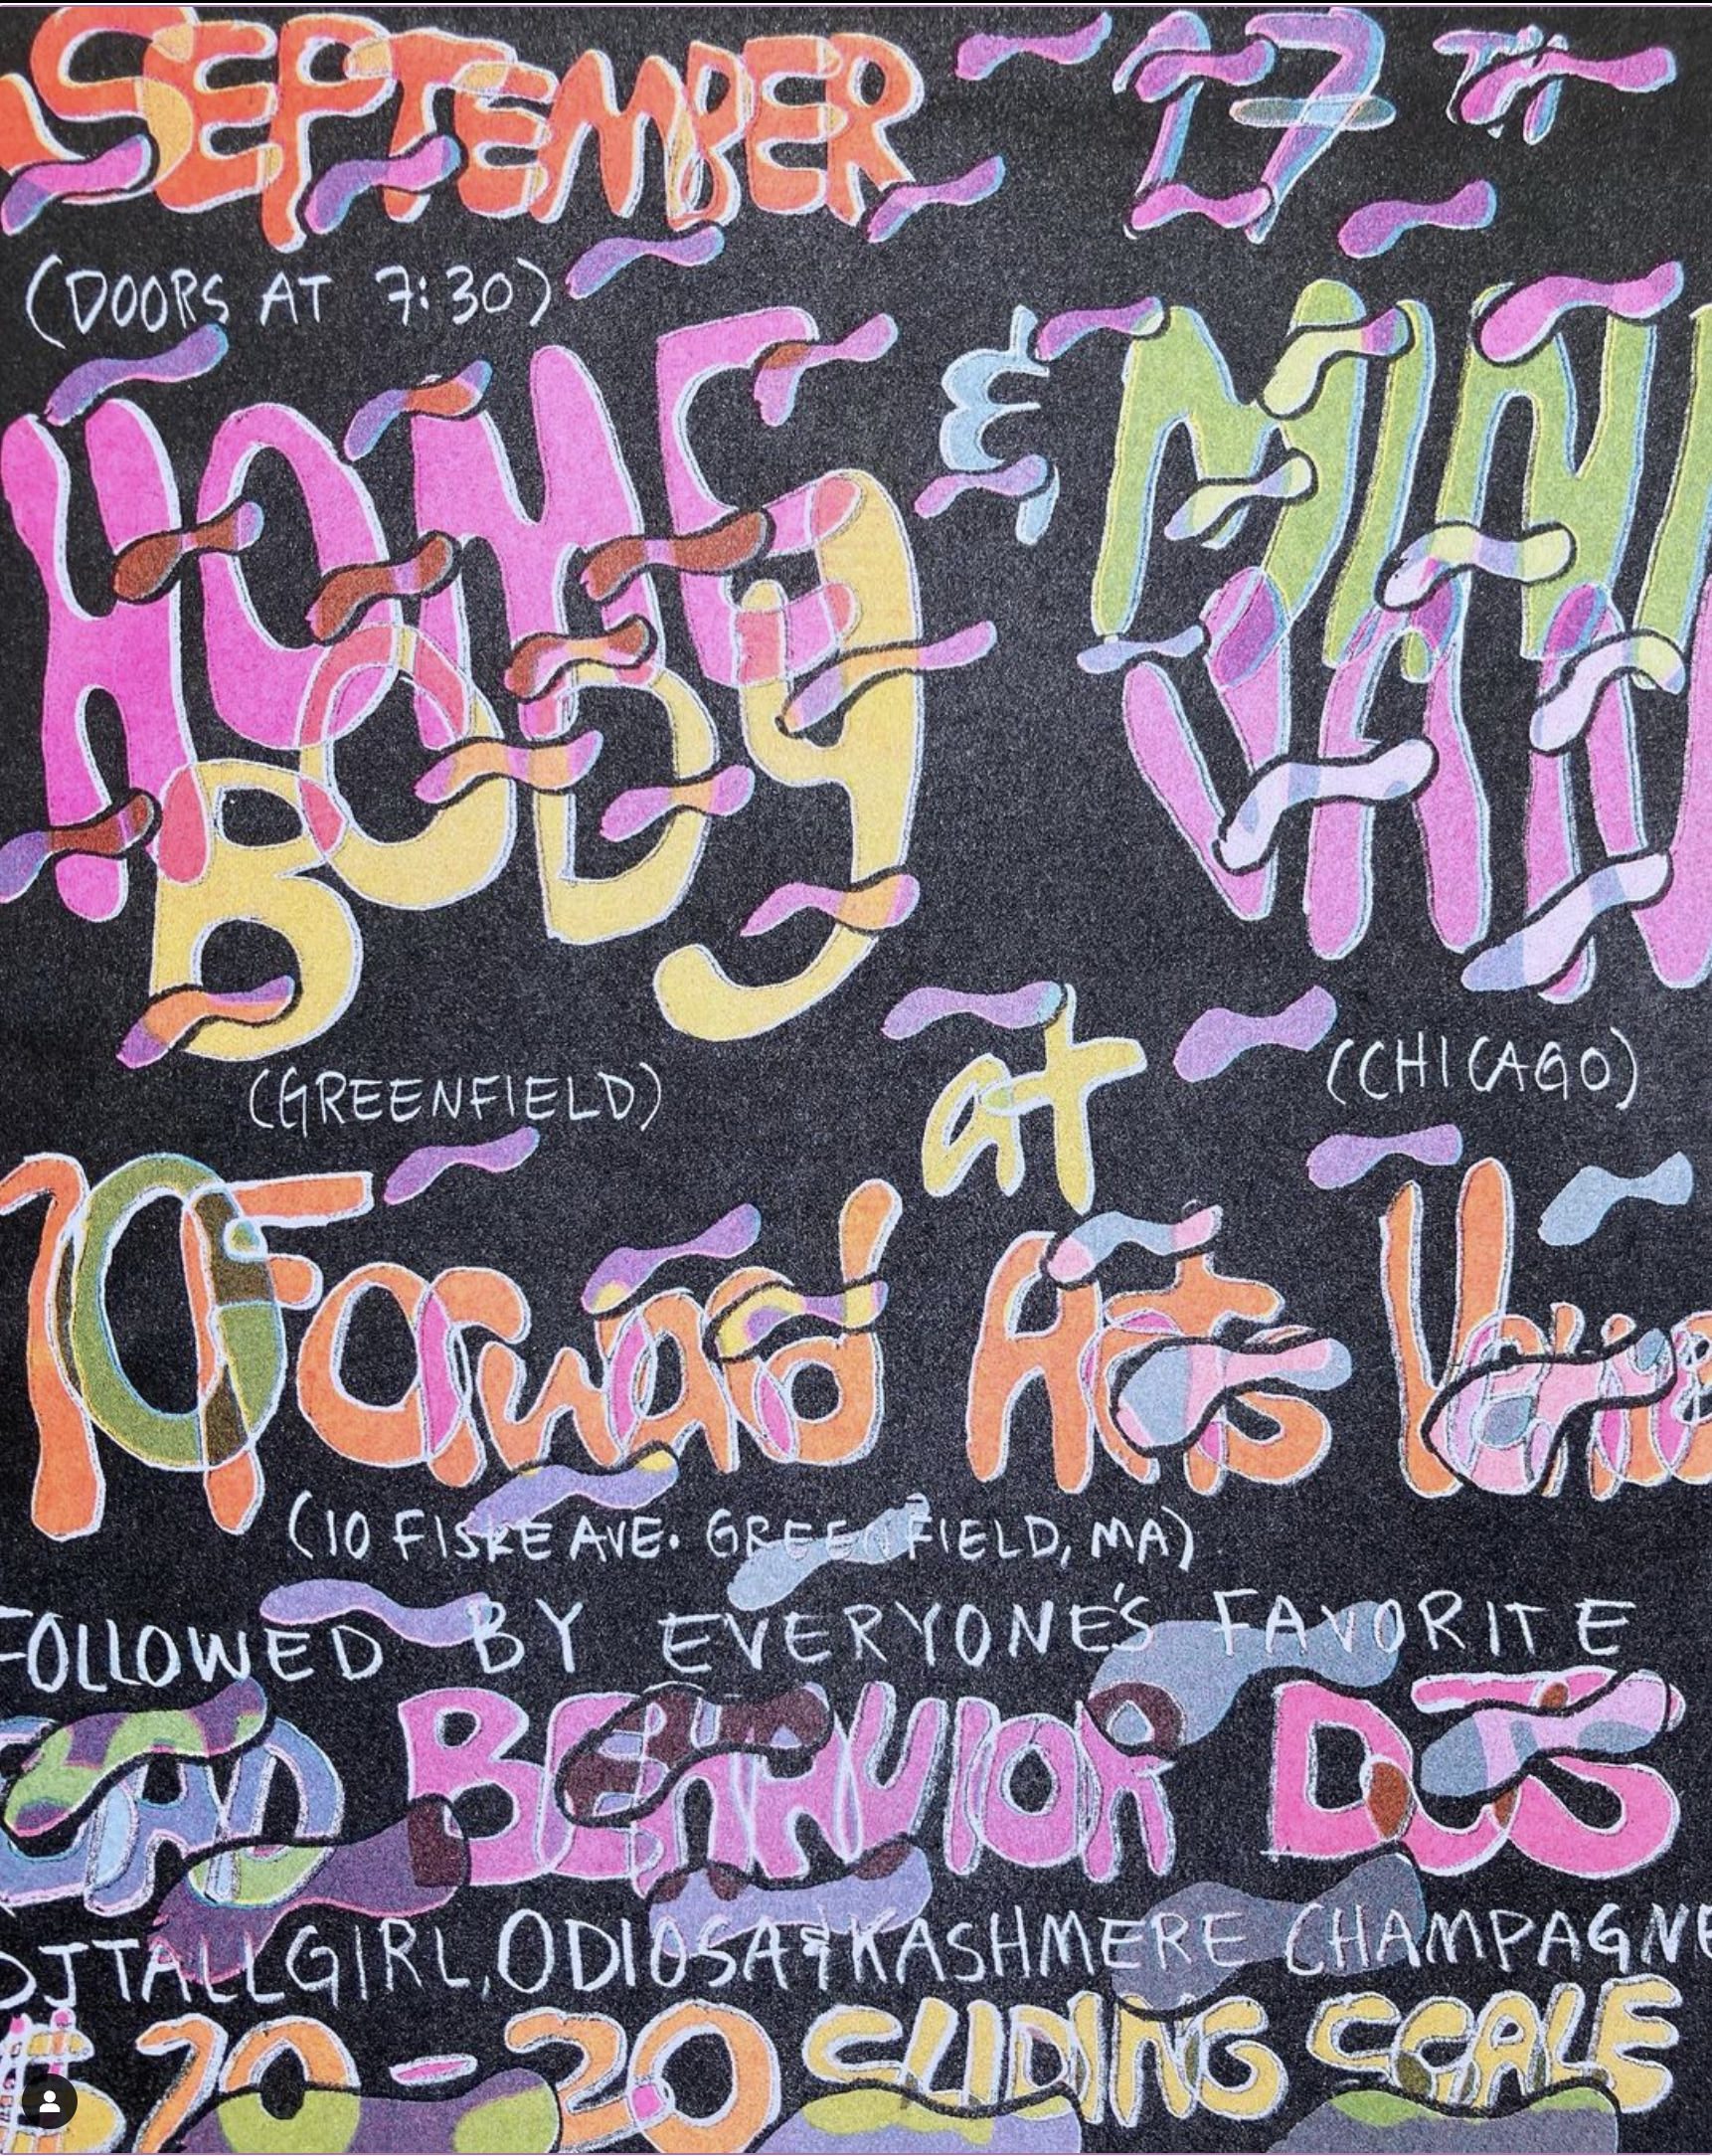 SEPTEMBER 17TH
(DOORS AT 7:30)
HOME & MINI
BODY VAN
(GREENFIELD) at (CHICAGO)
10Forward Arts Venue
(10 FISKE AVE. GREENFIELD, MA)
FOLLOWED BY EVERYONE'S FAVORITE
BAD BEHAVIOR DJS
DJ TALLGIRL, ODIOSA & KASHMERE CHAMPAGNE
$10-20 SLIDING SCALE